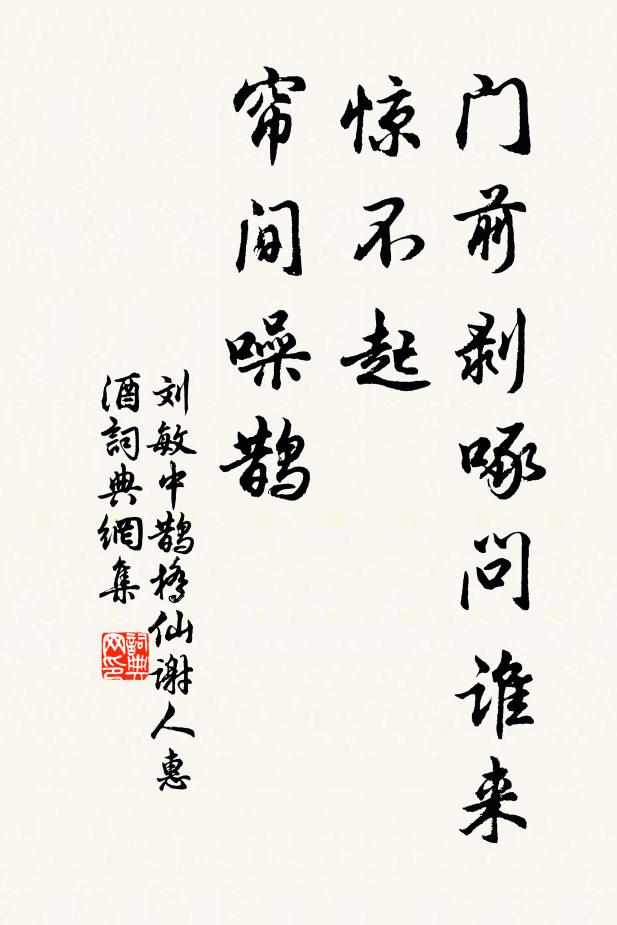 门前剥啄问谁来
惊不起
帘间噪鹊
刘敏中鹊桥仙谢人惠
酒詞典網集
詞典
网印